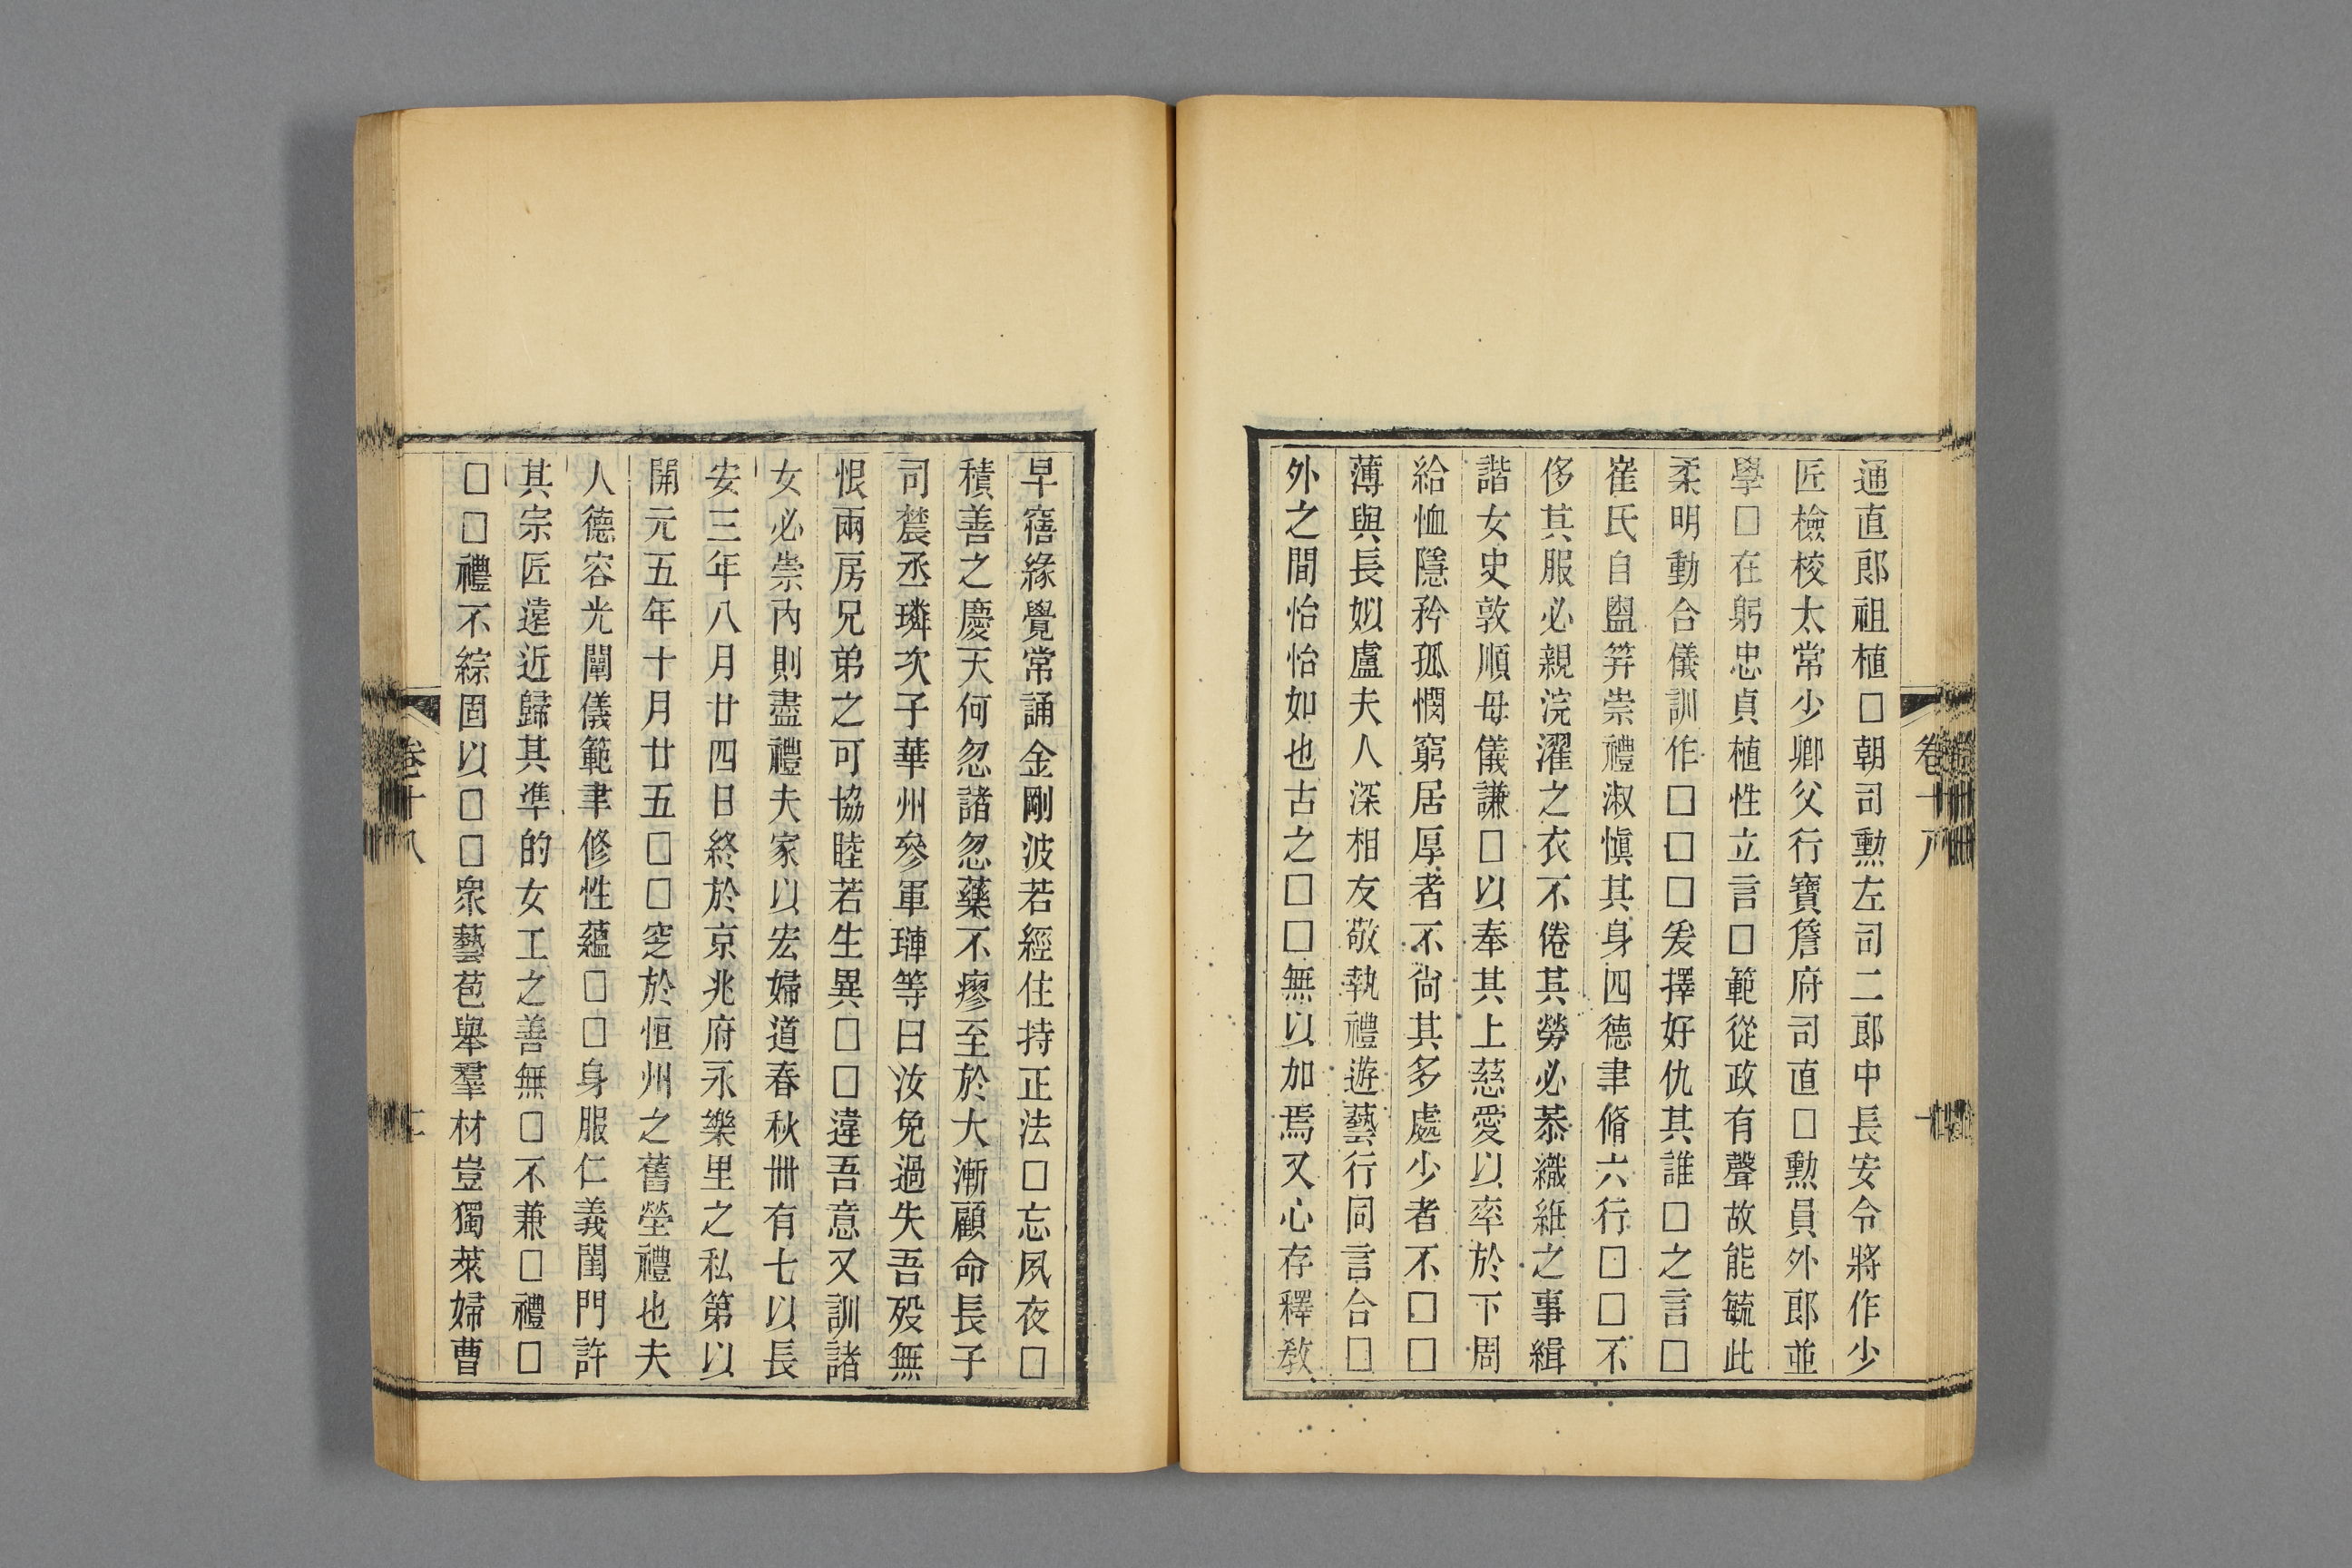 通直郎祖植□朝司勲左司二郎中長安令將作少
匠檢校太常少卿父行寶詹府司直□勲員外郎並
學□在躬忠貞植性立言□範從政有聲故能毓此
柔明動合儀訓作□□□爰擇好仇其誰□之言□
崔氏自盥笄崇禮淑愼其身四德聿脩六行□□不
侈其服必親浣濯之衣不倦其勞必恭織絍之事緝
諧女史敦順母儀謙□以奉其上慈愛以率於下周
給恤隱矜孤憫窮居厚者不尙其多處少者不□□
薄與長姒盧夫人深相友敬執禮遊藝行同言合□
外之間怡怡如也古之□□無以加焉又心存釋敎
早寤緣覺常誦金剛波若經住持正法□忘夙夜□
積善之慶天何忽諸忽藥不瘳至於大漸顧命長子
司農丞璘次子華州參軍璉等曰汝免過失吾歿無
恨兩房兄弟之可協睦若生異□□違吾意又訓諸
女必崇內則盡禮夫家以宏婦道春秋卌有七以長
安三年八月廿四日終於京兆府永樂里之私第以
開元五年十月廿五□□窆於恒州之舊塋禮也夫
人德容光闡儀範聿修性蘊□□身服仁義閨門許
其宗匠遠近歸其準的女工之善無□不兼□禮□
□□禮不綜固以□□衆藝苞舉羣材豈獨萊婦曹
卷十八
卷十八